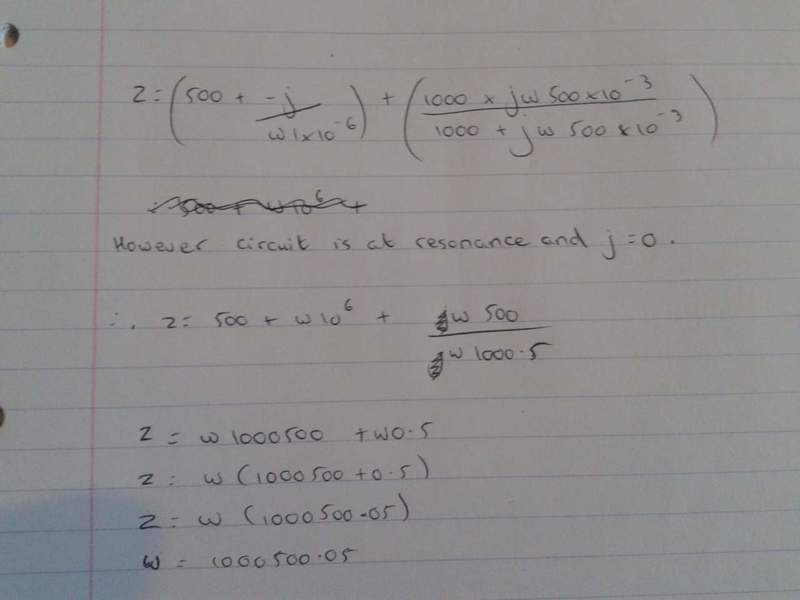 Z = (500 + -j / ω1×10⁻⁶) + (1000 × jω 500×10⁻³ / 1000 + jω 500×10⁻³)
However circuit is at resonance and j=0.
∴ Z = 500 + ω10⁶ + jω 500 / jω 1000.5
Z = ω1000500 + ω0.5
Z = ω(1000500+0.5)
Z = ω(1000500.05)
ω = 1000500.05